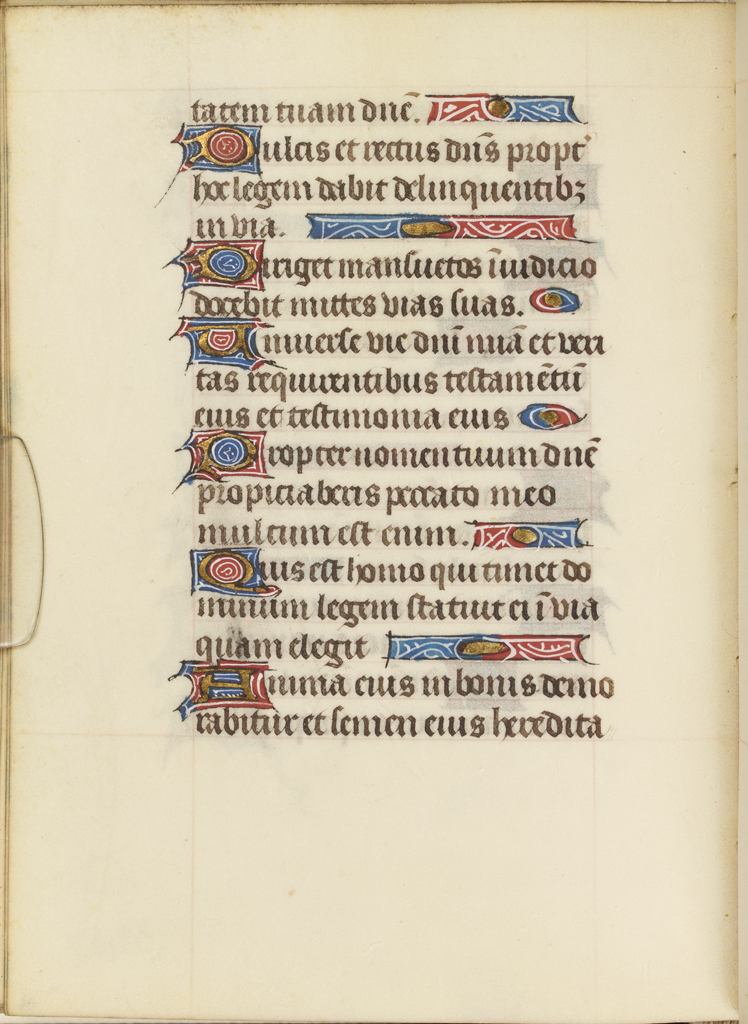 tatem tuam dnē.
Dulcis et rectus dn̄s propt᾿
hoc legem dabit delinquentibꝫ
in via.
Diriget mansuetos ī iudicio
docebit mittes vias suas.
Vniuerse vie dnī mīa et veri
tas requirentibus testamētū
eius et testimonia eius
Propter nomen tuum dnē
propiciaberis peccato meo
multum est enim.
Quis est homo qui timet do
minum legem statuit ei ī via
quam elegit
Anima eius in bonis demo
rabitur et semen eius heredita